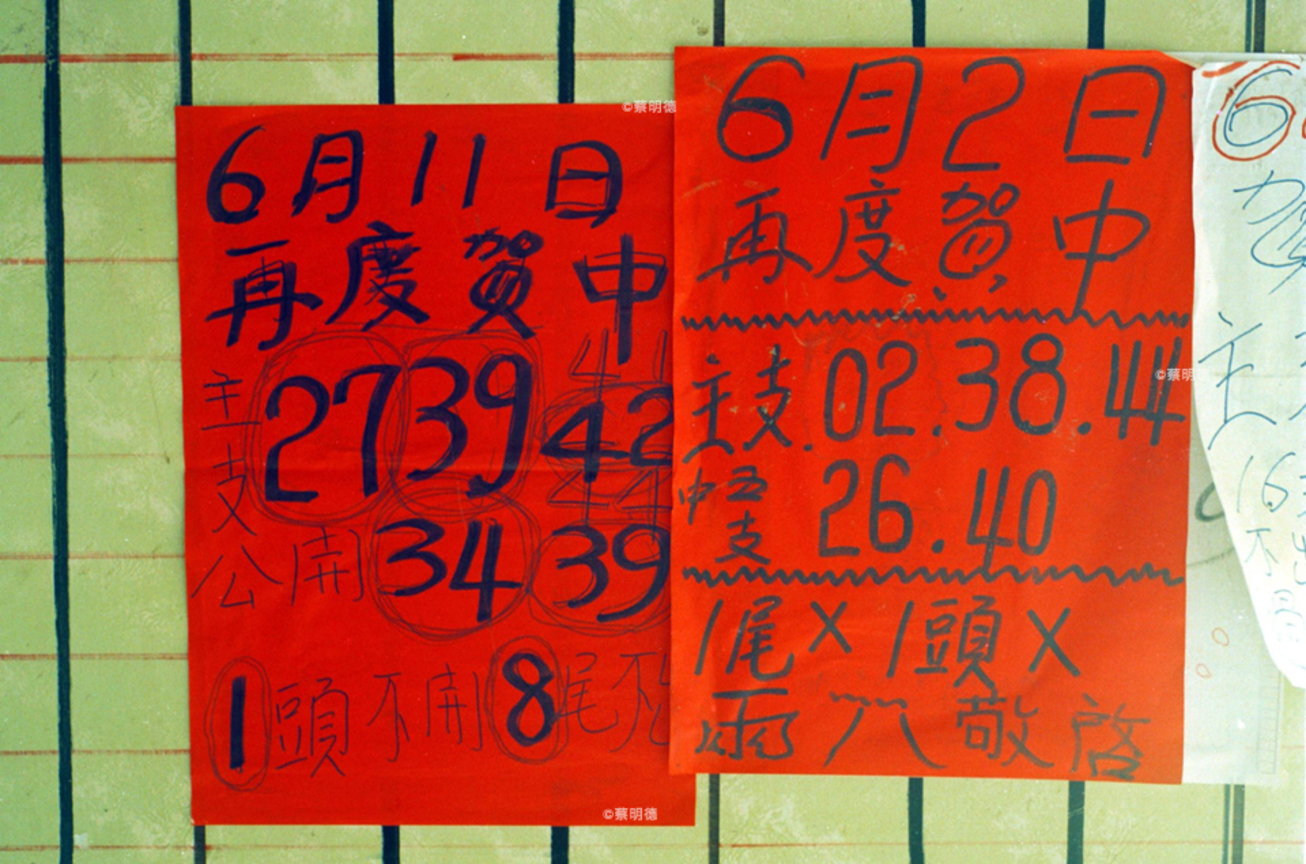 6月11日
再度賀中
主支 27 39 42
44
44
公開 34 39
1頭不開 8尾不
6月2日
再度賀中
主支.02.38.44
中五支 26.40
1尾X 1頭X
敬啓
6
賀
主
16
不出
©蔡明德
©蔡明德
©蔡明德